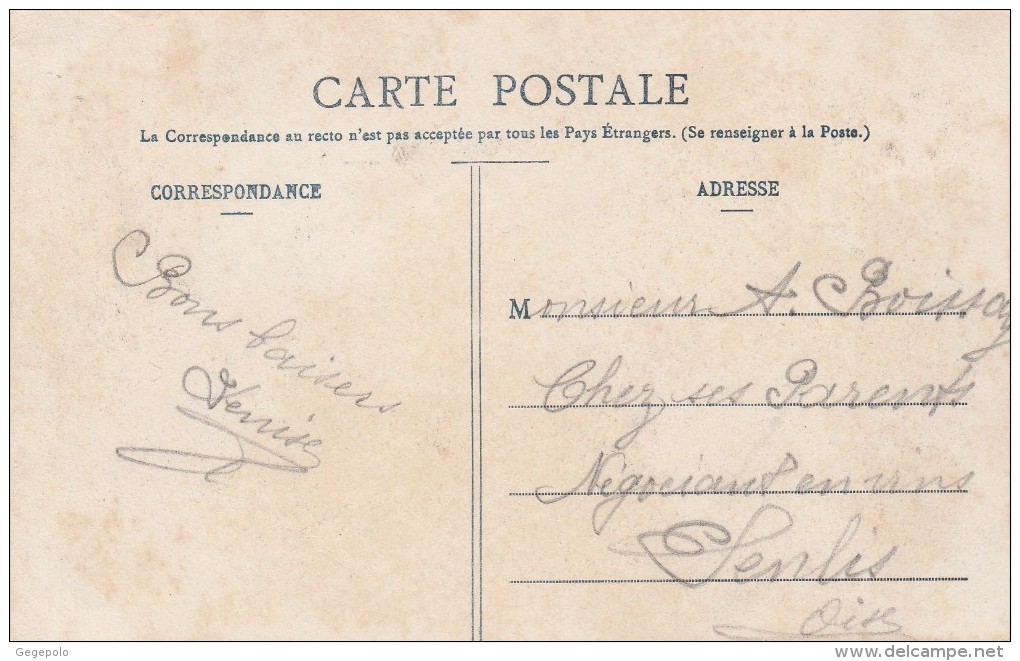 CARTE POSTALE
La Correspondance au recto n'est pas acceptée par tous les Pays Étrangers. (Se renseigner à la Poste.)
CORRESPONDANCE
Bons baisers
Denise
ADRESSE
Monsieur A. Boissay
Chez ses Parents
Négociant en vins
Senlis
Oise
Gegepolo
www.delcampe.net